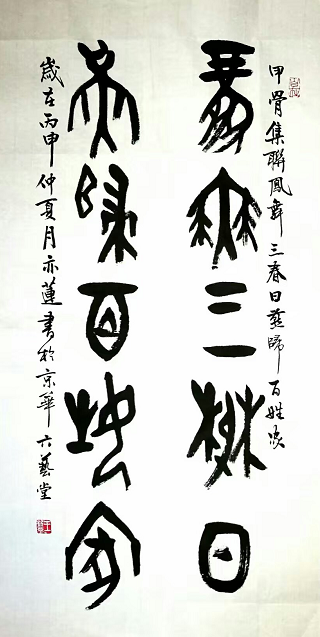 甲骨集聯鳳舞三春日燕歸百姓家
鳳舞三春日
燕歸百姓家
歲在丙申仲夏月亦蓮書於京華六藝堂